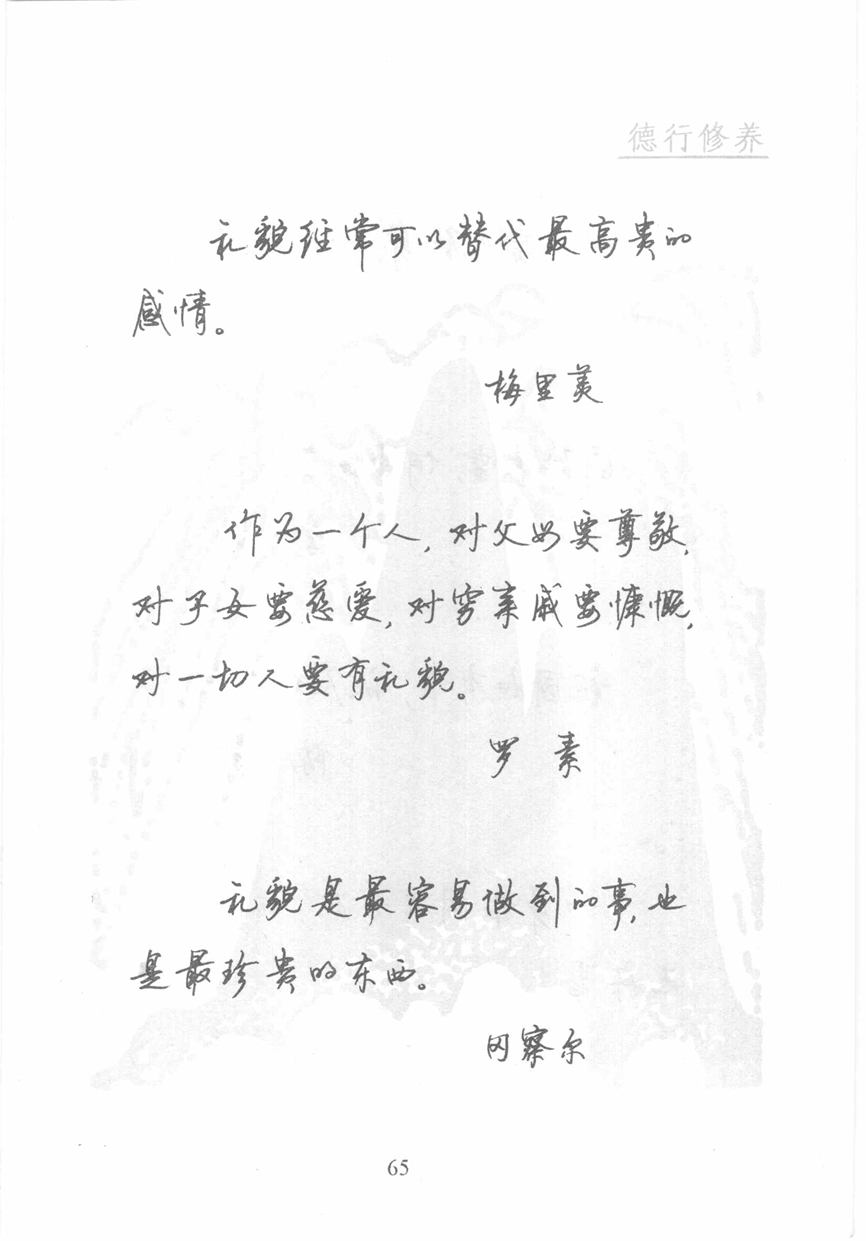 德行修养
礼貌经常可以替代最高贵的
感情。
梅里美
作为一个人,对父母要尊敬,
对子女要慈爱,对穷亲戚要慷慨,
对一切人要有礼貌。
罗 素
礼貌是最容易做到的事,也
是最珍贵的东西。
冈察尔
65